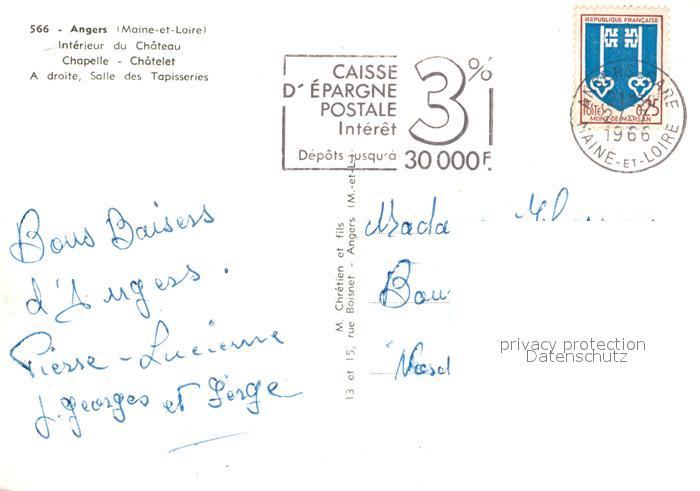 566 - Angers (Maine-et-Loire)
Intérieur du Château
Chapelle - Châtelet
A droite, Salle des Tapisseries
CAISSE
D'ÉPARGNE
POSTALE
Intérêt
3%
Dépôts jusqu'à 30 000 F.
REPUBLIQUE FRANÇAISE
POSTES 0,25
MONT-DE-MARSAN
ANGERS GARE
1966
MAINE-ET-LOIRE
Bons Baisers
d'Angers.
Pierre - Lucienne
J. Georges et Serge
M. Chrétien et fils
13 et 15, rue Boisnet - Angers (M.-et-L.)
Mada
Bou
privacy protection
Datenschutz